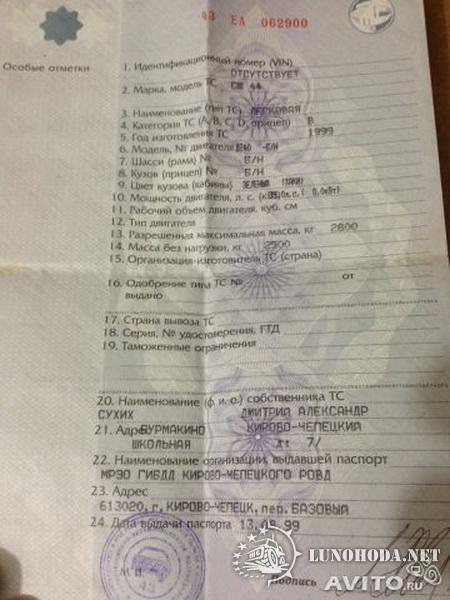 43 ЕА 062900
Особые отметки
1. Идентификационный номер (VIN)
ОТСУТСТВУЕТ
2. Марка, модель ТС
3. Наименование (тип ТС) ЛЕГКОВАЯ
4. Категория ТС (A, B, C, D, прицеп) B
5. Год изготовления ТС 1999
6. Модель, № двигателя Б/Н
7. Шасси (рама) № Б/Н
8. Кузов (прицеп) № Б/Н
9. Цвет кузова (кабины) ЗЕЛЕНЫЙ
10. Мощность двигателя, л. с.
11. Рабочий объем двигателя, куб. см
12. Тип двигателя
13. Разрешенная максимальная масса, кг 2800
14. Масса без нагрузки, кг
15. Организация-изготовитель ТС (страна)
16. Одобрение типа ТС № от
выдано
17. Страна вывоза ТС
18. Серия, № удостоверения, ГТД
19. Таможенные ограничения
20. Наименование (ф. и. о.) собственника ТС
СУХИХ ДМИТРИЙ АЛЕКСАНДР
21. Адрес БУРМАКИНО КИРОВО-ЧЕПЕЦКИЙ
ШКОЛЬНАЯ 7/
22. Наименование организации, выдавшей паспорт
МРЭО ГИБДД КИРОВО-ЧЕПЕЦКОГО РОВД
23. Адрес
613020, г. КИРОВО-ЧЕПЕЦК, пер. БАЗОВЫЙ
24. Дата выдачи паспорта
М.П.
43
Подпись
LUNOHODA.NET
AVITO.ru